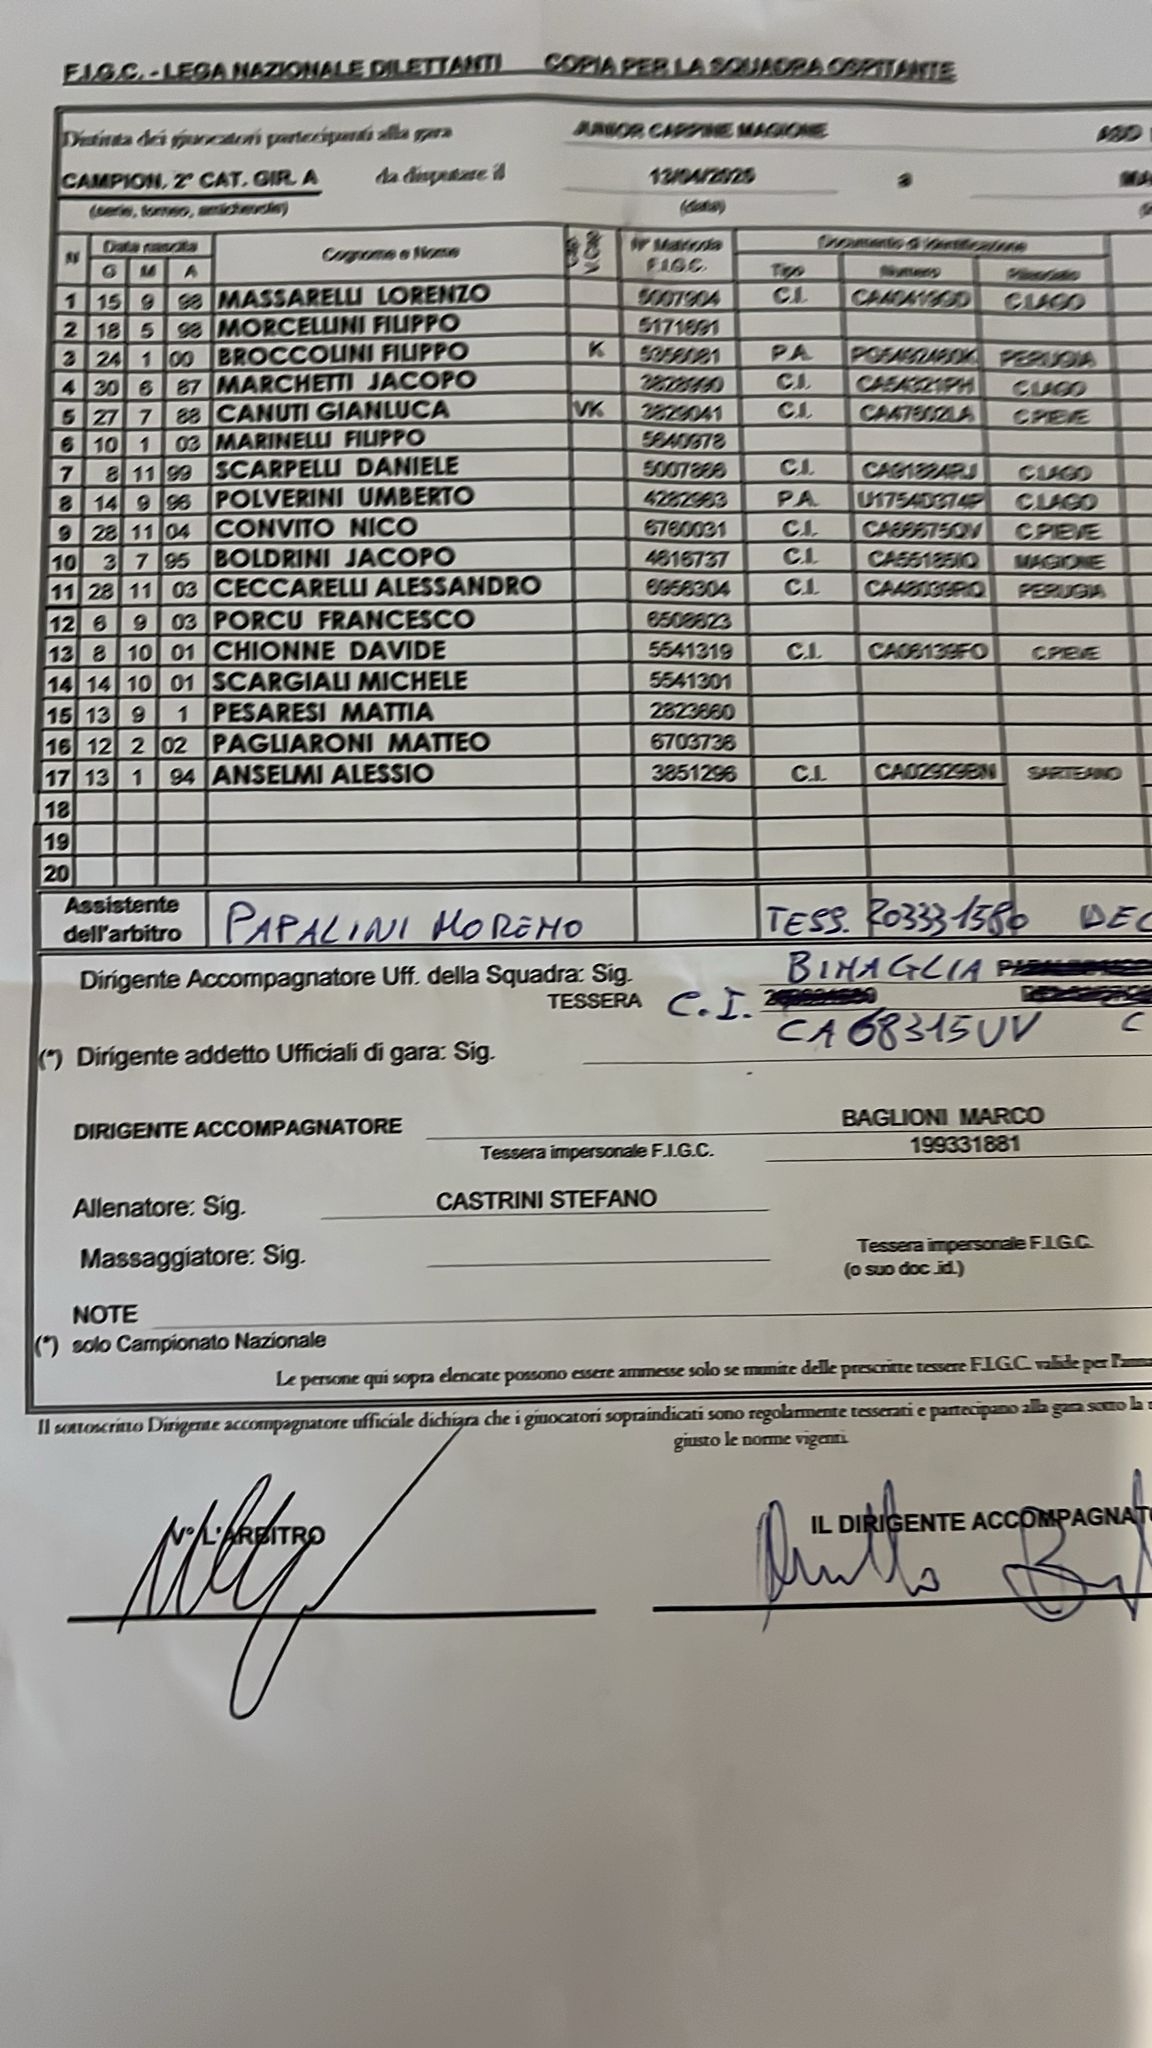 F.I.G.C. - LEGA NAZIONALE DILETTANTI COPIA PER LA SQUADRA OSPITANTE
Distinta dei giuocatori partecipanti alla gara JUNIOR CARPINE MAGIONE ASD
CAMPION. 2° CAT. GIR. A da disputare il 13/04/2025 a MA
(serie, torneo, amichevole) (data)
N Data nascita Cognome e Nome N° Matricola Documento di Identificazione
G M A F.I.G.C. Tipo Numero Rilasciato
1 15 9 98 MASSARELLI LORENZO 5007904 C.I. C.LAGO
2 18 5 98 MORCELLINI FILIPPO 5171691
3 24 1 00 BROCCOLINI FILIPPO K 5356081 P.A. PERUGIA
4 30 6 87 MARCHETTI JACOPO C.I. CA54321PH C.LAGO
5 27 7 88 CANUTI GIANLUCA VK 3829041 C.I. CA47602LA C.PIEVE
6 10 1 03 MARINELLI FILIPPO 5640978
7 8 11 99 SCARPELLI DANIELE C.I. C.LAGO
8 14 9 96 POLVERINI UMBERTO P.A. C.LAGO
9 28 11 04 CONVITO NICO 6760031 C.I. C.PIEVE
10 3 7 95 BOLDRINI JACOPO 4616737 C.I. MAGIONE
11 28 11 03 CECCARELLI ALESSANDRO 6956304 C.I. PERUGIA
12 6 9 03 PORCU FRANCESCO 6508623
13 8 10 01 CHIONNE DAVIDE 5541319 C.I. CA06139FO C.PIEVE
14 14 10 01 SCARGIALI MICHELE 5541301
15 13 9 1 PESARESI MATTIA 2823660
16 12 2 02 PAGLIARONI MATTEO 6703736
17 13 1 94 ANSELMI ALESSIO 3851296 C.I. CA02929BN SARTEANO
18
19
20
Assistente
dell'arbitro PAPALINI MORENO TESS. 203331580 DEC
Dirigente Accompagnatore Uff. della Squadra: Sig. BIMAGLIA
TESSERA C.I.
CA68315UV C
(*) Dirigente addetto Ufficiali di gara: Sig.
DIRIGENTE ACCOMPAGNATORE BAGLIONI MARCO
Tessera impersonale F.I.G.C. 199331881
Allenatore: Sig. CASTRINI STEFANO
Massaggiatore: Sig. Tessera impersonale F.I.G.C.
(o suo doc .id.)
NOTE
(*) solo Campionato Nazionale
Le persone qui sopra elencate possono essere ammesse solo se munite delle prescritte tessere F.I.G.C. valide per l'anna
Il sottoscritto Dirigente accompagnatore ufficiale dichiara che i giuocatori sopraindicati sono regolarmente tesserati e partecipano alla gara sotto la
giusto le norme vigenti.
V° L'ARBITRO IL DIRIGENTE ACCOMPAGNATO